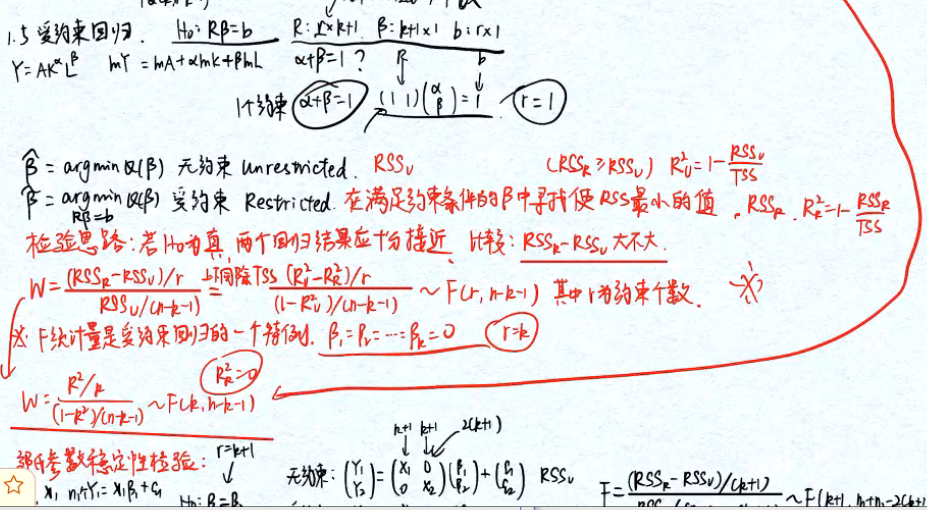 1.5 受约束回归. H₀: Rβ=b R: r×k+1 β: k+1×1 b: r×1
Y=AK^α L^β lnY = lnA+αlnK+βlnL α+β=1? R b
1个约束 α+β=1 (1 1)(α β)=1 r=1
β̂ = argmin Q(β) 无约束 Unrestricted. RSS_U (RSS_R≥RSS_U) R²_U=1-RSS_U/TSS
β̃ = argmin Q(β) 受约束 Restricted. 在满足约束条件的β中寻找使RSS最小的值. RSS_R. R²_R=1-RSS_R/TSS
Rβ=b
检验思路:若H₀为真,两个回归结果应十分接近. 比较: RSS_R-RSS_U 大不大.
W=((RSS_R-RSS_U)/r)/(RSS_U/(n-k-1)) 上下同除TSS = ((R²_U-R²_R)/r)/((1-R²_U)/(n-k-1)) ~ F(r, n-k-1) 其中r为约束个数.
※. F统计量是受约束回归的一个特例. β₁=β₂=…=β_k=0 r=k
R²_R=0
W=(R²/k)/((1-R²)/(n-k-1)) ~F(k, n-k-1)
参数稳定性检验: r=k+1
k+1 k+1 2(k+1)
无约束: (Y₁ Y₂)=(X₁ 0 0 X₂)(β₁ β₂)+(ε₁ ε₂) RSS_U
F=(RSS_R-RSS_U)/(k+1) ~F(k+1, n₁+n₂-2(k+1
X₁ n₁个Y₁=X₁β₁+ε₁